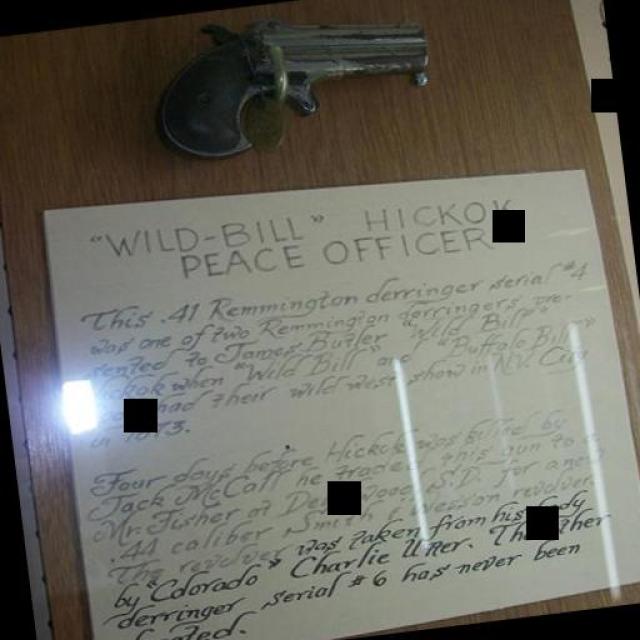 "WILD-BILL" HICKOK
PEACE OFFICER
This .41 Remmington derringer serial #4
was one of two Remmington derringers pre-
sented to James Butler "Wild Bill"
when "Wild Bill" & "Buffalo Bill"
had their wild west show in N.Y. City
in
Four days before Hickok was killed by
Jack McCall he traded this gun to
Mr. Fisher of S.D. for a new
.44 caliber Smith & Wesson revolver
The revolver was taken from his body
by "Colorado" Charlie Utter. The other
derringer serial #6 has never been